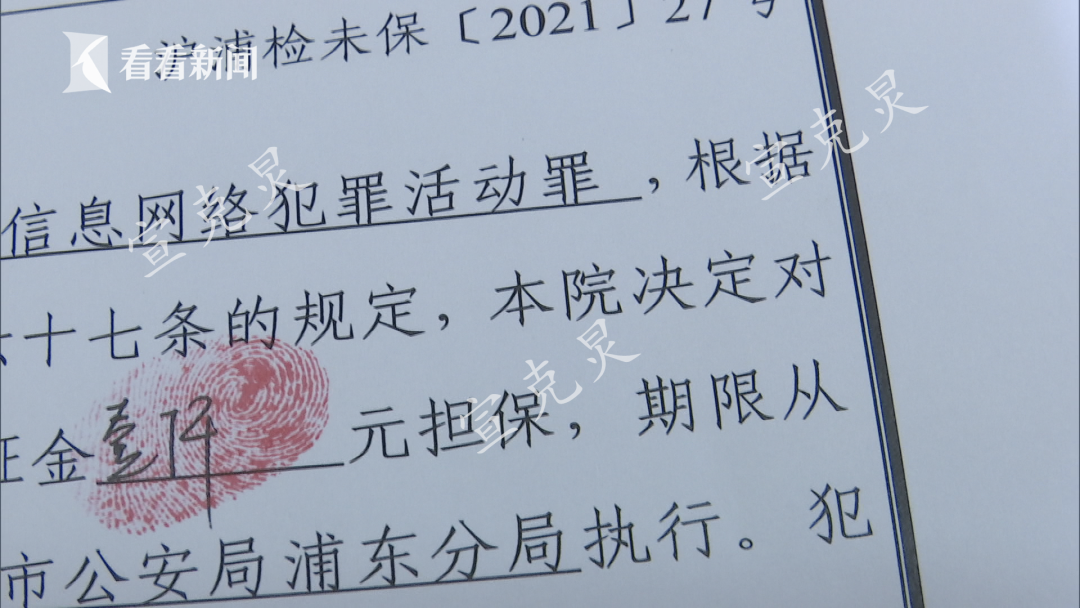 沪浦检未保〔2021〕27号
看看新闻
信息网络犯罪活动罪,根据
六十七条的规定,本院决定对
证金壹仟元担保,期限从
市公安局浦东分局执行。犯
宣克炅
宣克炅
宣克炅